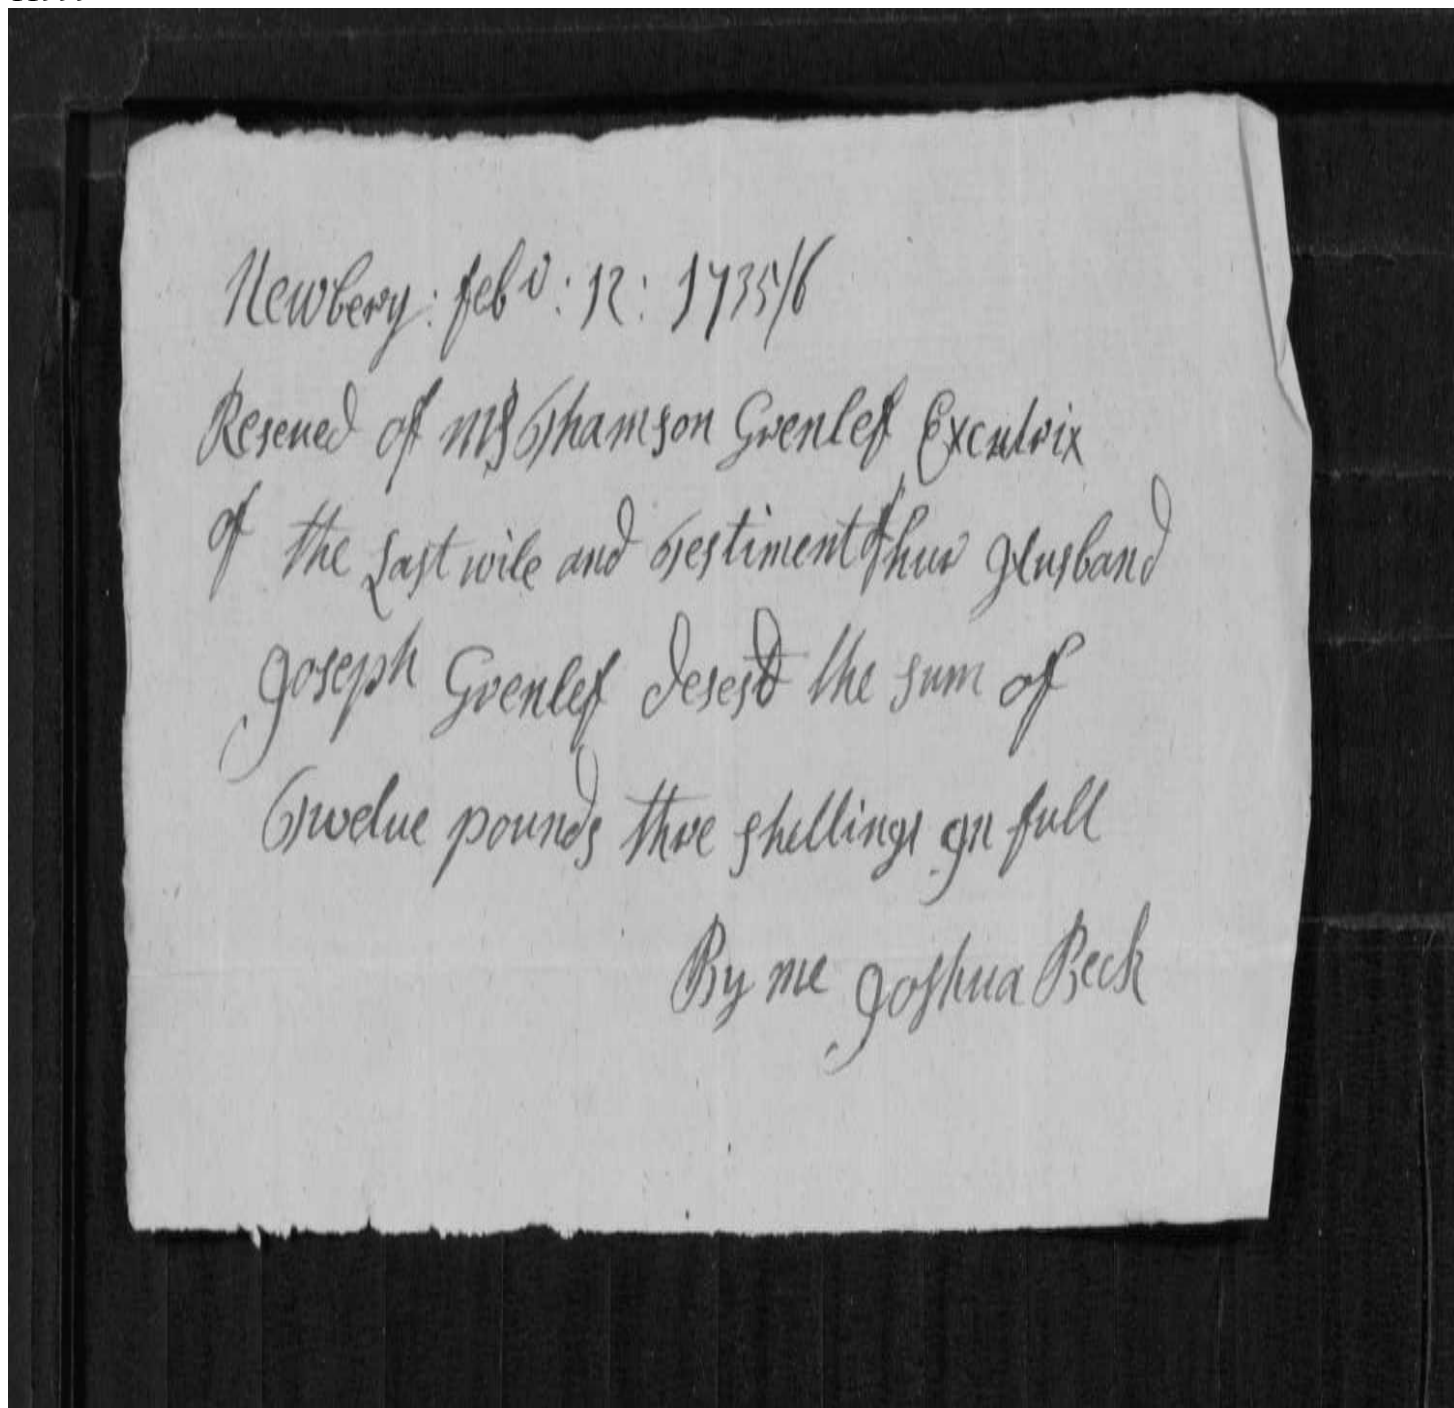 Newbery: feb r: 12: 1735/6
Reseued of Mrs Thamson Grenlef Excutrix
of the Last wile and Testiment of hur Husband
Joseph Grenlef desesd the sum of
Twelue pounds thre shellings In full
By me Joshua Beck